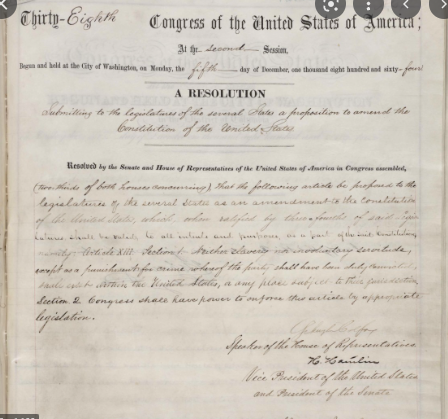 Thirty-Eighth Congress of the United States of America;
At the second Session,
Begun and held at the City of Washington, on Monday, the fifth day of December, one thousand eight hundred and sixty-four
A RESOLUTION
Submitting to the legislatures of the several States a proposition to amend the
Constitution of the United States
Resolved by the Senate and House of Representatives of the United States of America in Congress assembled,
(two-thirds of both houses concurring) that the following article be proposed to the
legislatures of the several States as an amendment to the Constitution
of the United States, which, when ratified by three-fourths of said legis
latures shall be valid, to all intents and purposes, as a part of the said Constitution
namely: Article XIII. Section 1. Neither slavery nor involuntary servitude,
except as a punishment for crime whereof the party shall have been duly convicted,
shall exist within the United States, or any place subject to their jurisdiction.
Section 2. Congress shall have power to enforce this article by appropriate
legislation.
Schuyler Colfax
Speaker of the House of Representatives
H. Hamlin
Vice President of the United States
and President of the Senate